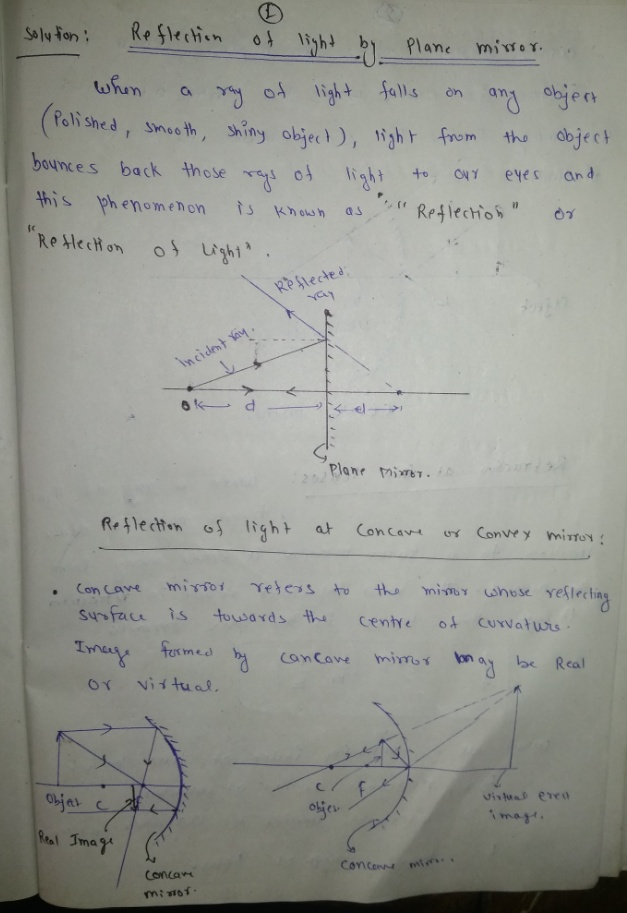 1
Solution: Reflection of light by Plane mirror.
When a ray of light falls on any object
(Polished, smooth, shiny object), light from the object
bounces back those rays of light to our eyes and
this phenomenon is known as "Reflection" or
"Reflection of Light".
Reflected ray
incident ray.
O d d
Plane mirror.
Reflection of light at Concave or Convex mirror:
• Concave mirror refers to the mirror whose reflecting
surface is towards the centre of curvature.
Image formed by concave mirror may be Real
or virtual.
Object C F
Real Image
Concave
mirror.
C F
Object
virtual erect
image.
Concave mirror.